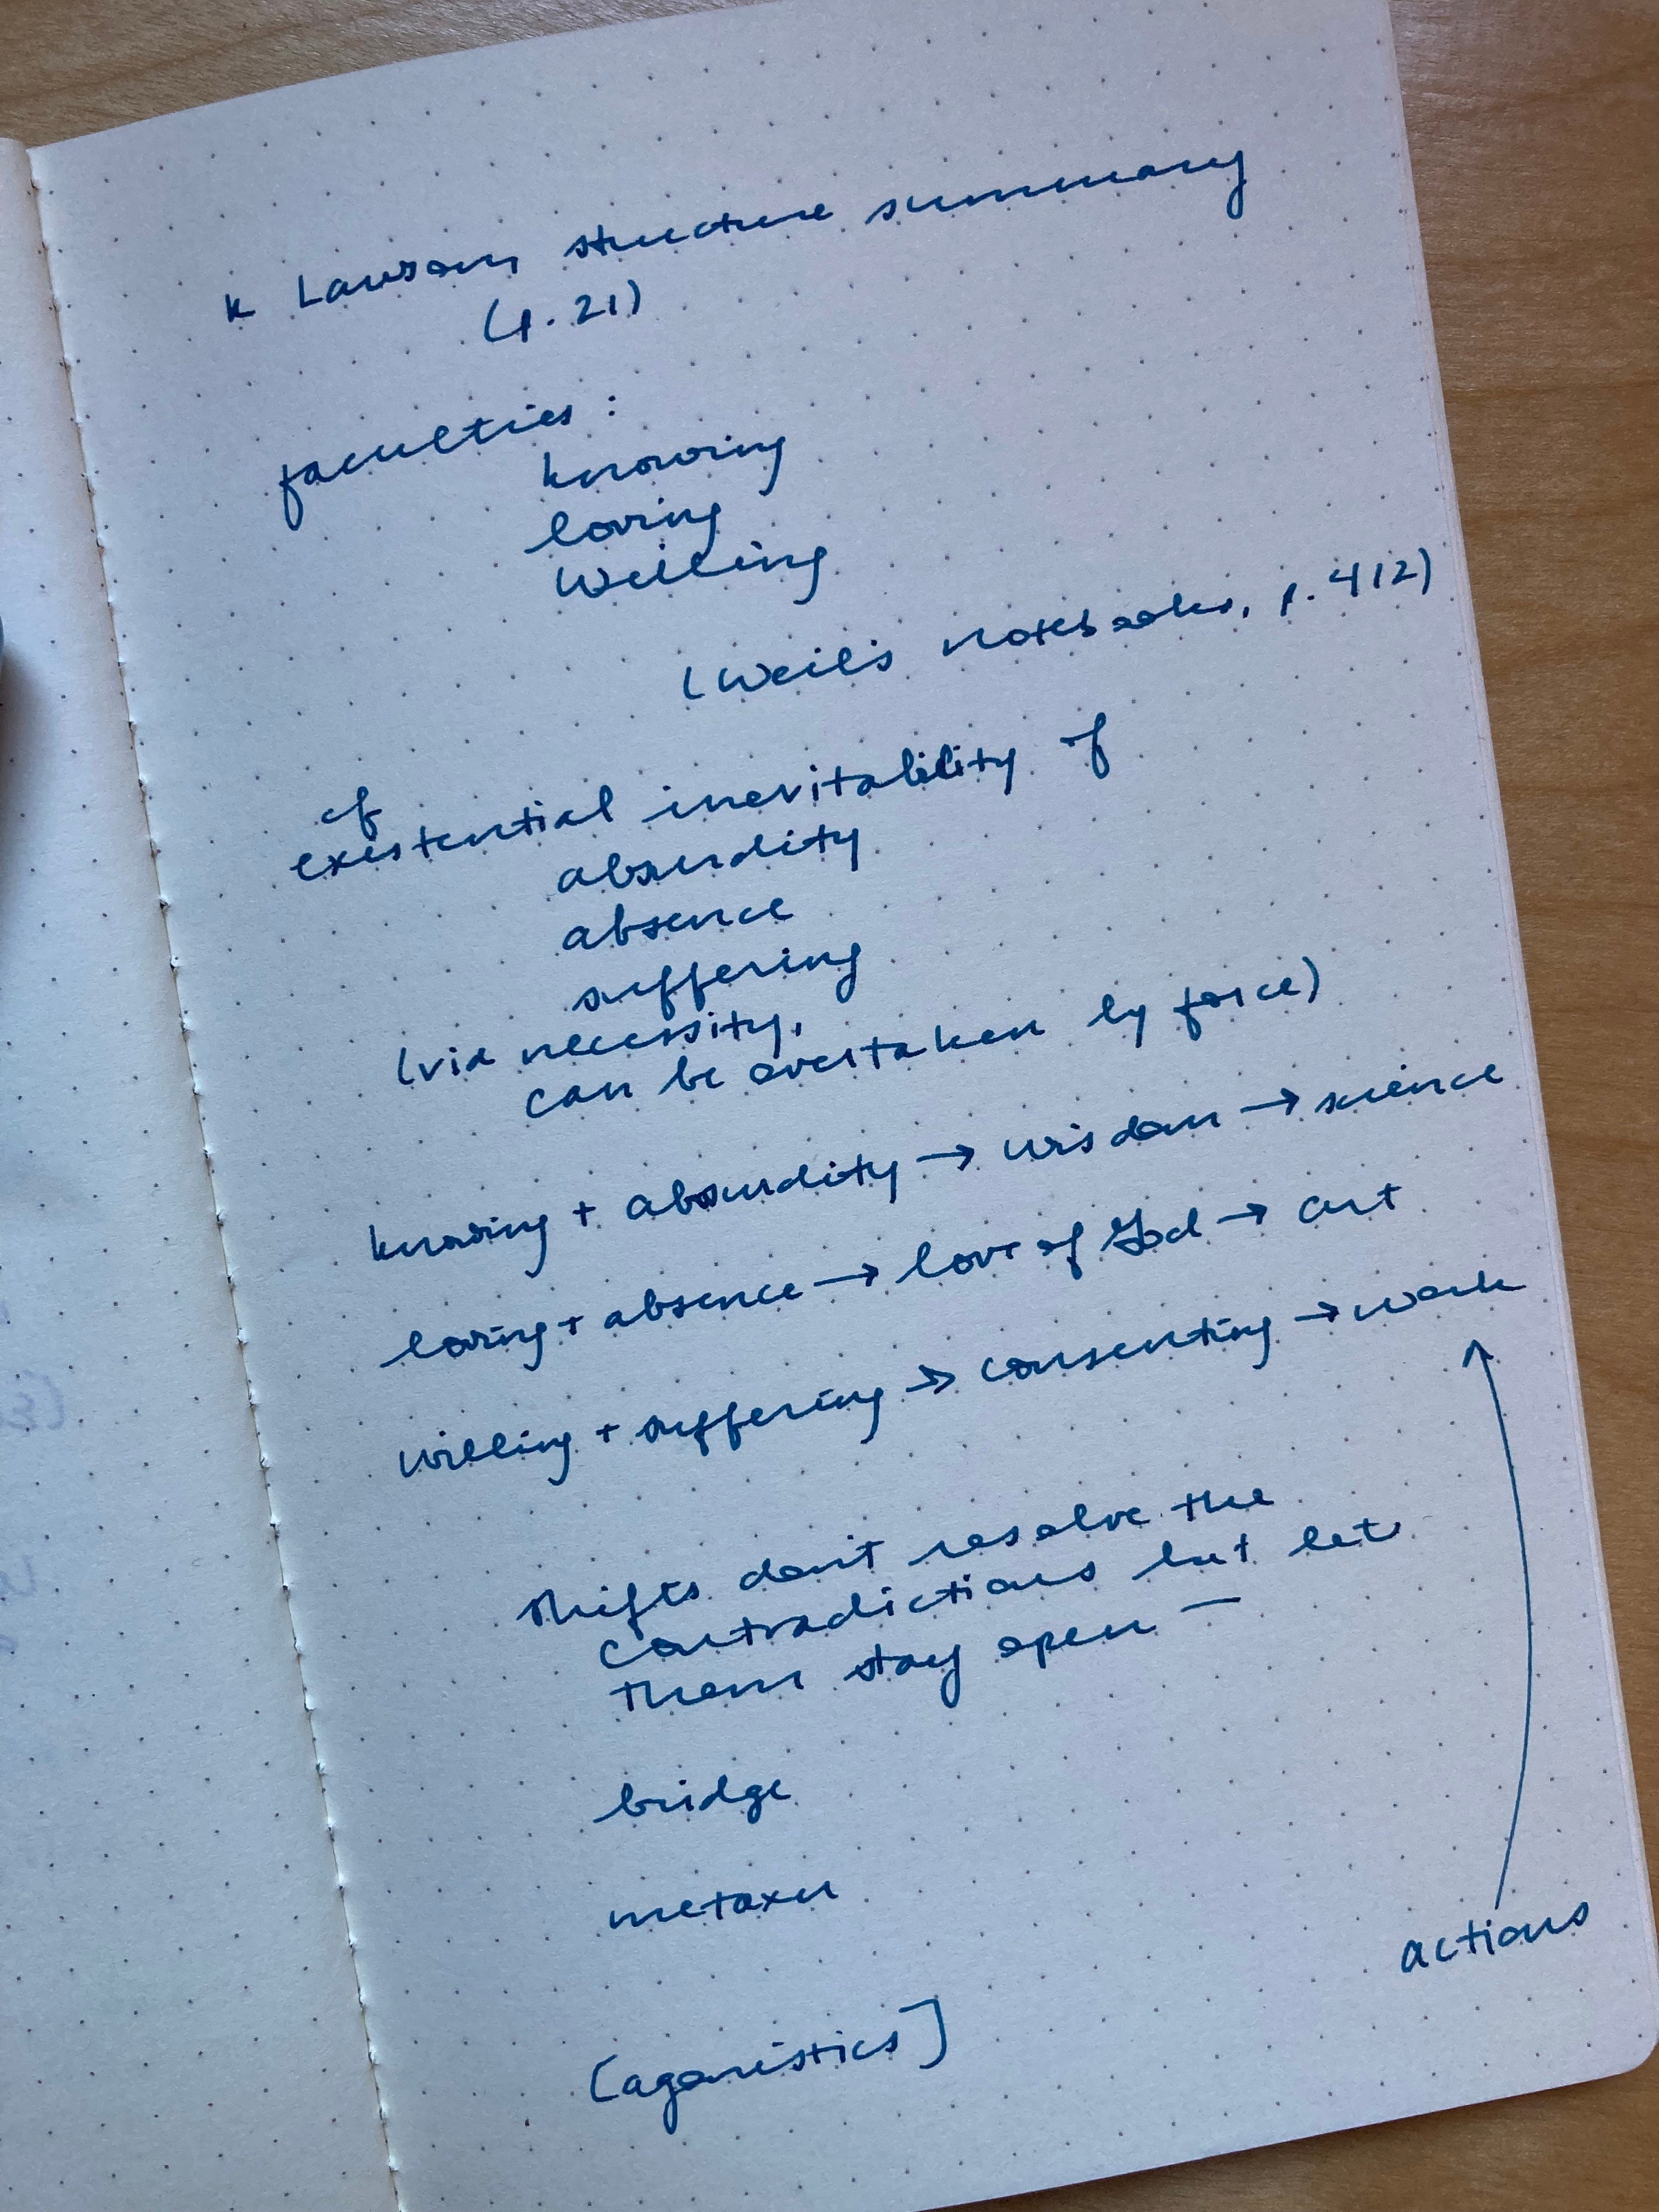 K Lawson, structure summary
(p. 21)
faculties:
knowing
loving
willing
(Weil's notebooks, p. 412)
cf
existential inevitability of
absurdity
absence
suffering
(via necessity,
can be overtaken by force)
knowing + absurdity → wisdom → science
loving + absence → love of God → art
willing + suffering → consenting → work
shifts don't resolve the
contradictions but let
them stay open —
bridge
metaxu
actions
[agonistics]